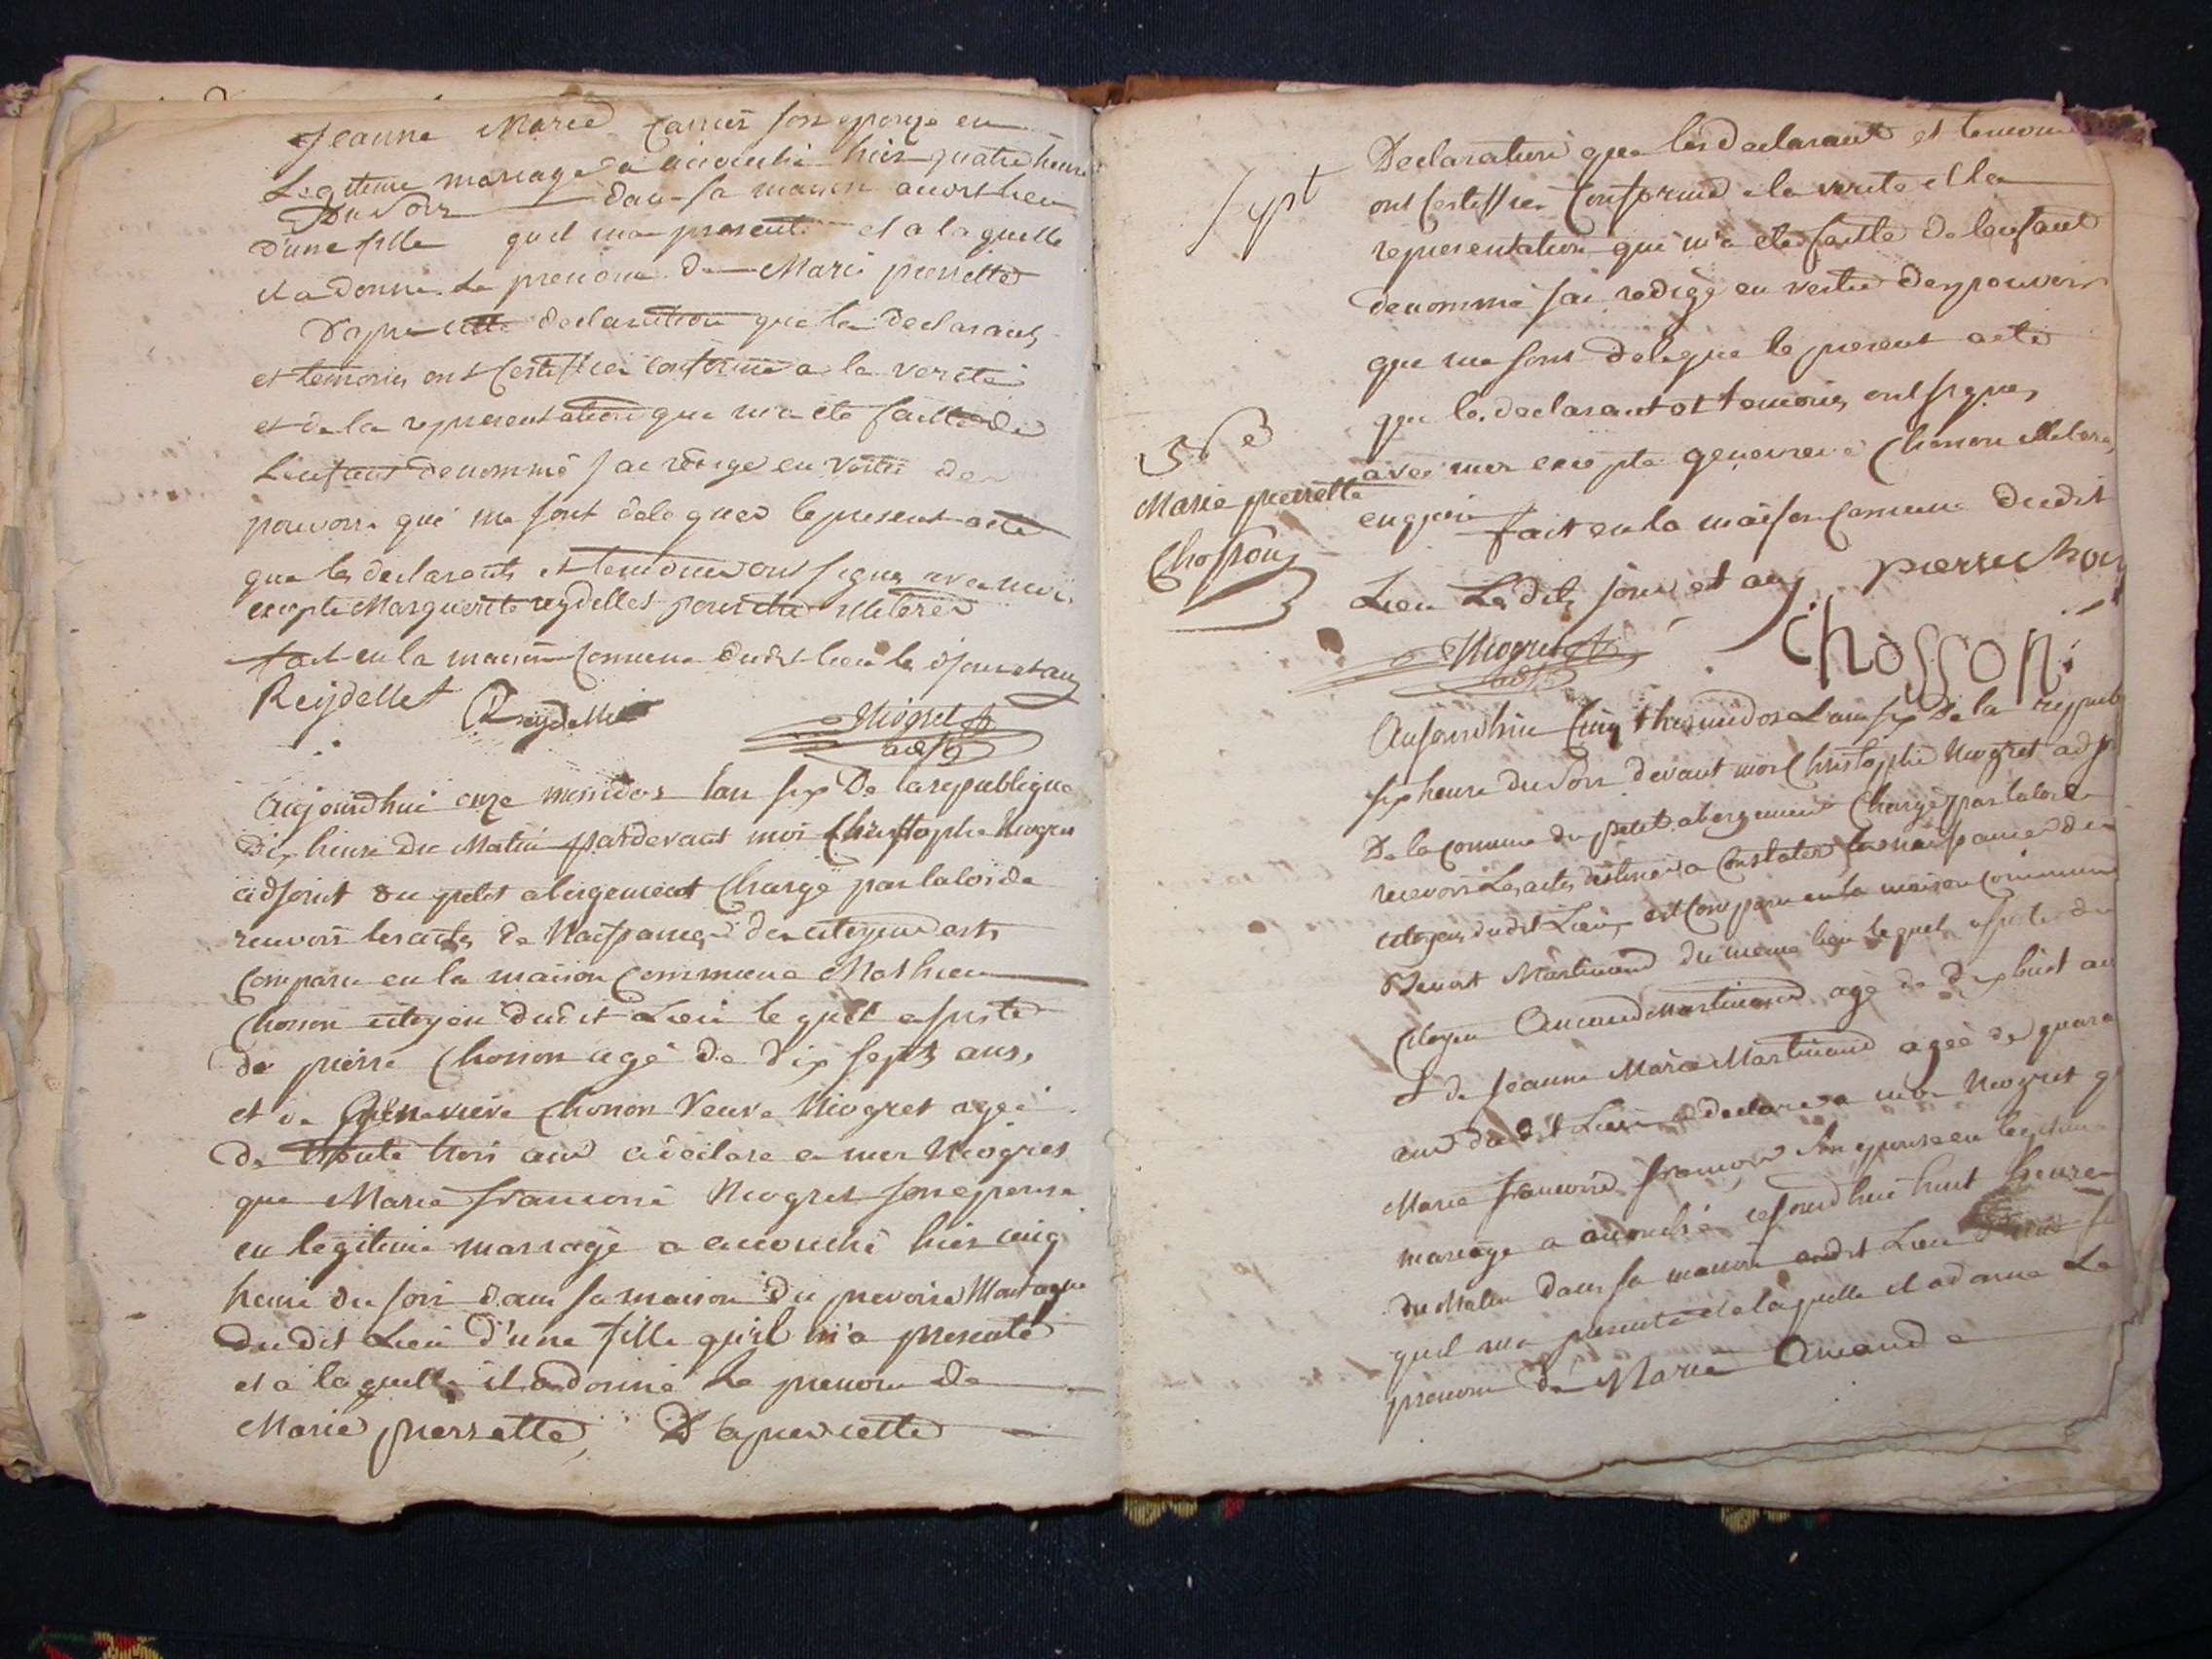 Jeanne Marie Carrier son epouze en
Legitime mariage a accouché hier quatre heure
Du Soir dan sa maison audit lieu
D'une fille quil ma presenté et a laquelle
il a donné le prenom de Marie pierrette
D'apres cette declaration que les declarants
et temoins ont certiffiée conforme a la verité
et de la representation qui m'a été faitte de
L'enfant denommé j'ai redigé en vertu des
pouvoirs qui me sont delegués le present acte
que les declarants et temoins ont signés avec moi
excepté Marguerite reydellet pour etre illiterée
fait en la maison commune dudit lieu les d jour et an
Reydellet Reydellet Niogret
adjt
Aujourdhui onze messidor lan six De la republique
Dix heure du Matin pardevant moi Christophe Niogret
adjoint du petit abergement Chargé par la loi de
recevoir les actes de Naissances des citoyens est
Comparu en la maison commune Mathieu
Chosson citoyen dudit Lieu le quel assisté
de pierre Chosson agé de dix sept ans,
et de Genevieve Chosson Veuve Niogret agée
de trente trois ans a déclaré a moi Niogret
que Marie francoise Niogret son epouse
en legitime mariage a accouché hier cinq
heure du soir dans sa maison du Montagne
dudit Lieu d'une fille qu'il m'a presenté
et a laquelle il a donné le prenom de
Marie pierrette, D'apres cette
Sept
Declaration que les declarant et temoins
ont certiffiée Conforme a la verité et la
representation qui m'a été faitte de l'enfant
denommé j'ai redigé en vertu des pouvoirs
que me sont delegué le present acte
que les declarant et temoins ont signés
Marie pierrette
Chosson
avec moi excepté genevieve Chosson illeteré
enquise fait en la maison commune dudit
Lieu Les dits jour et an pierre chos
Niogret Chosson
adjt
Aujourdhui Cinq thermidor L'an six De la repub
six heure du Soir devant moi Christophe Niogret adj
De la commune du petit abergement Chargé par la loi de
recevoir Les actes destinés a Constater les naissances des
citoyens dudit Lieu, est Comparu en la maison commune
Benoit Martinand du meme lieu lequel assisté du
Citoyen Amand Martinand agé de dix huit an
& de Jeanne Marie Martinand agée de quara
ans dudit Lieu a declaré a moi Niogret q
Marie francoise francois Son epouse en legitime
mariage a accouché cejourdhui huit heures
du Matin dans sa maison audit Lieu
quil ma presenté et a laquelle il a donné Le
prenom de Marie Amande